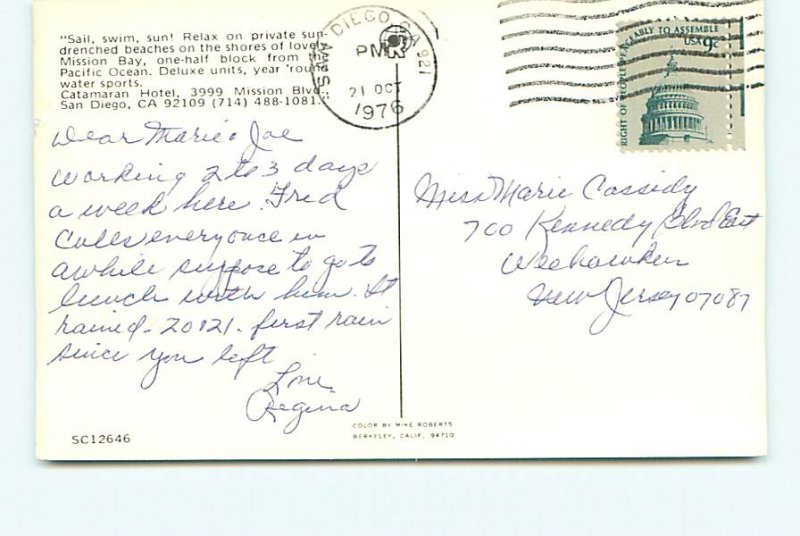 "Sail, swim, sun! Relax on private sun-
drenched beaches on the shores of lovel
Mission Bay, one-half block from the
Pacific Ocean. Deluxe units, year 'roun
water sports.
Catamaran Hotel, 3999 Mission Blvd.
San Diego, CA 92109 (714) 488-1081."
DIEGO CA 921
PM
21 OCT
1976
RIGHT OF PEOPLE PEACEABLY TO ASSEMBLE
USA 9c
Dear Marie & Joe
working 2 to 3 days
a week here. Fred
calls every once in
awhile suppose to go to
lunch with him. It
rained - 20 & 21. first rain
since you left
Love
Regina
Miss Marie Cassidy
700 Kennedy Blvd East
Weehawken
New Jersey 07087
SC12646
COLOR BY MIKE ROBERTS
BERKELEY, CALIF. 94710